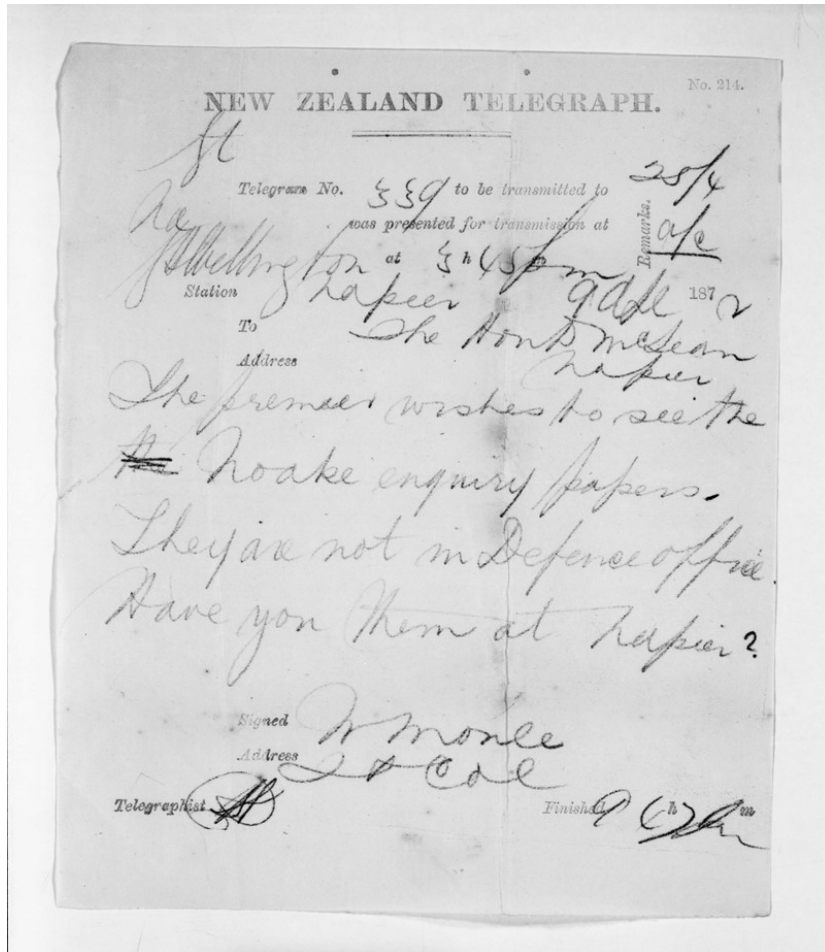 No. 214.
NEW ZEALAND TELEGRAPH.
Telegram No. 339 to be transmitted to
28/4
was presented for transmission at
Remarks.
Wellington at 3 h 45 pm
Station Napier 9 1872
To The Hon D McLean
Address Napier
The premier wishes to see the
the Noake enquiry papers.
They are not in Defence office.
Have you them at Napier?
Signed W Moule
Address Lt Col
Telegraphist
Finished h m